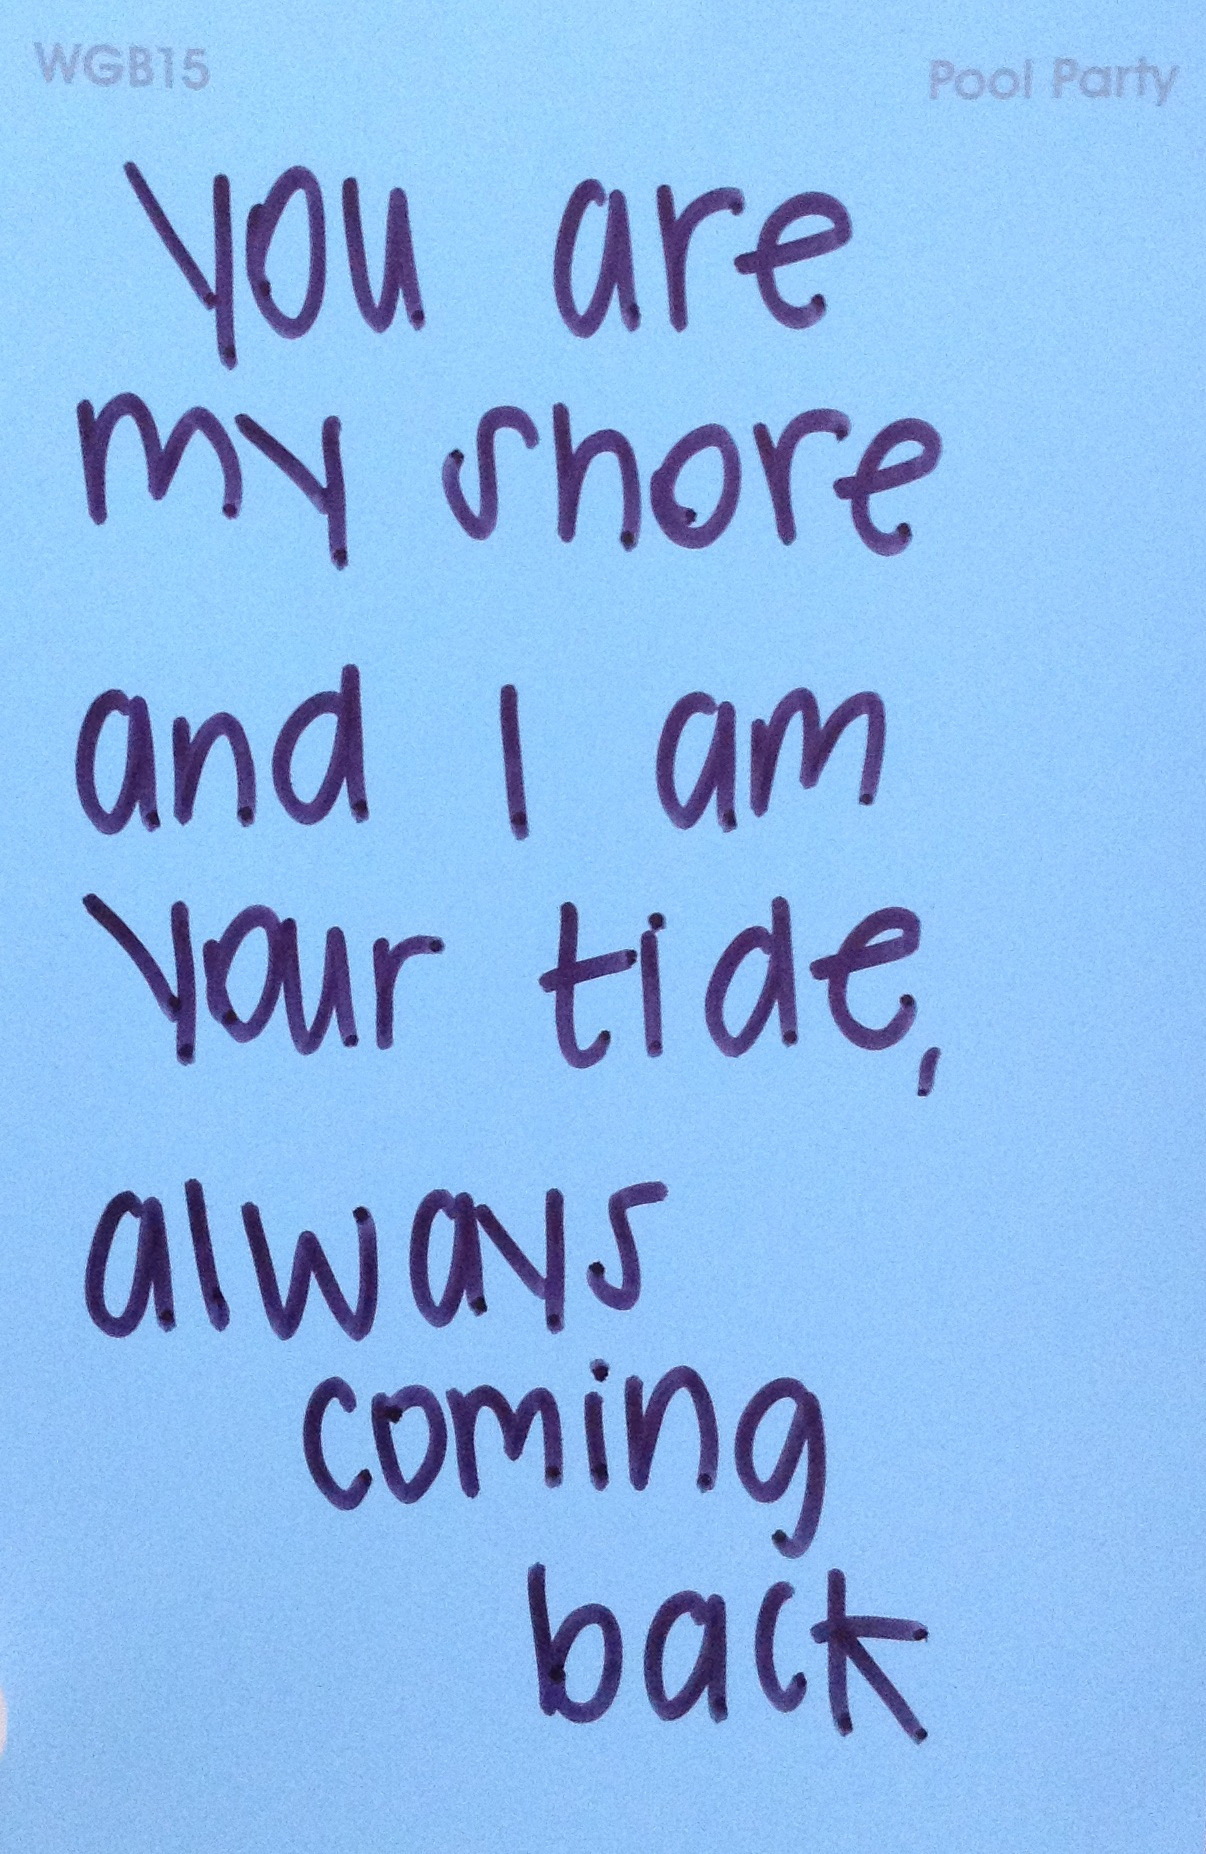 WGB15 Pool Party
you are
my shore
and I am
your tide,
always
coming
back